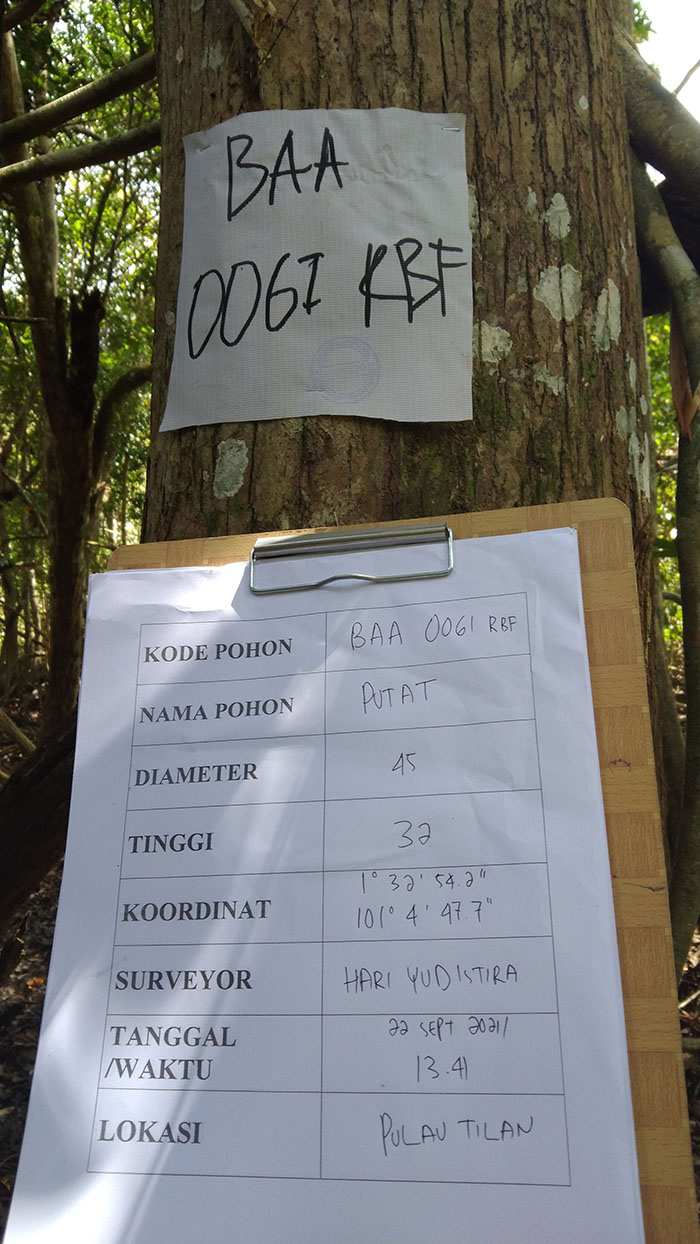 BAA
0061 RBF
KODE POHON BAA 0061 RBF
NAMA POHON PUTAT
DIAMETER 45
TINGGI 32
KOORDINAT 1° 32' 54.2"
101° 4' 47.7"
SURVEYOR HARI YUDISTIRA
TANGGAL 22 SEPT 2021/
/WAKTU 13.41
LOKASI PULAU TILAN